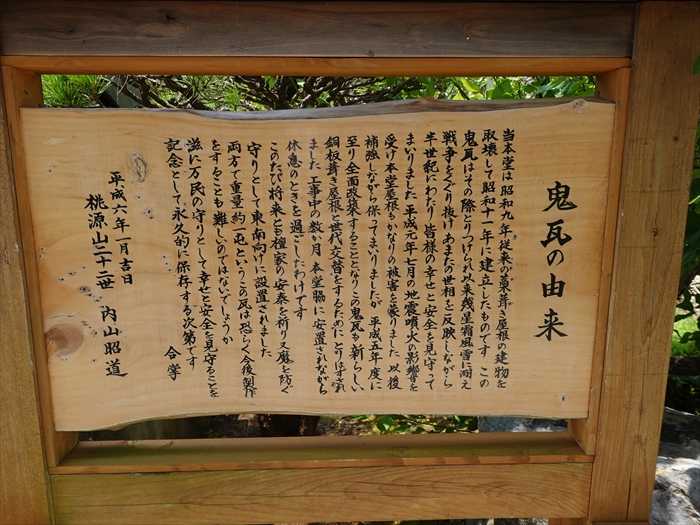 鬼瓦の由来
当本堂は昭和九年、従来の藁葺き屋根の建物を
取壊して昭和十一年に建立したものです この
鬼瓦はその際とりつけられ以来幾星霜風雪に耐え
戦争をくぐり抜けあまたの世相を反映しながら
半世紀にわたり皆様の幸せと安全を見守って
まいりました 平成元年七月の地震噴火の影響を
受け本堂屋根もかなりの被害を蒙りました 以後
補強しながら保ってまいりましたが、平成五年度に
至り全面改築することとなりこの鬼瓦も新らしい
銅板葺き屋根と世代交替をするためにとりはずされ
ました 工事中の数か月 本堂脇に安置されながら
休息のときを過ごしたわけです
このたび将来とも檀家の安泰を祈り又魔を防ぐ
守りとして東南向けに設置されました
両方で重量約一屯というこの瓦は恐らく今後製作
をすることも難しいのではないでしょうか
茲に万民の守りとして幸せと安全を見守ることを
記念として永久的に保存する次第です
合掌
平成六年一月吉日
桃源山二十二世 内山昭道